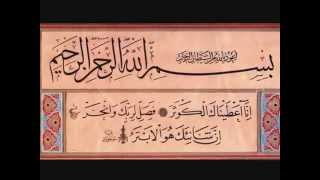 اعوذ بالله من الشيطان الرجيم
بسم الله الرحمن الرحيم
انا اعطيناك الكوثر فصل لربك وانحر
ان شانئك هو الابتر